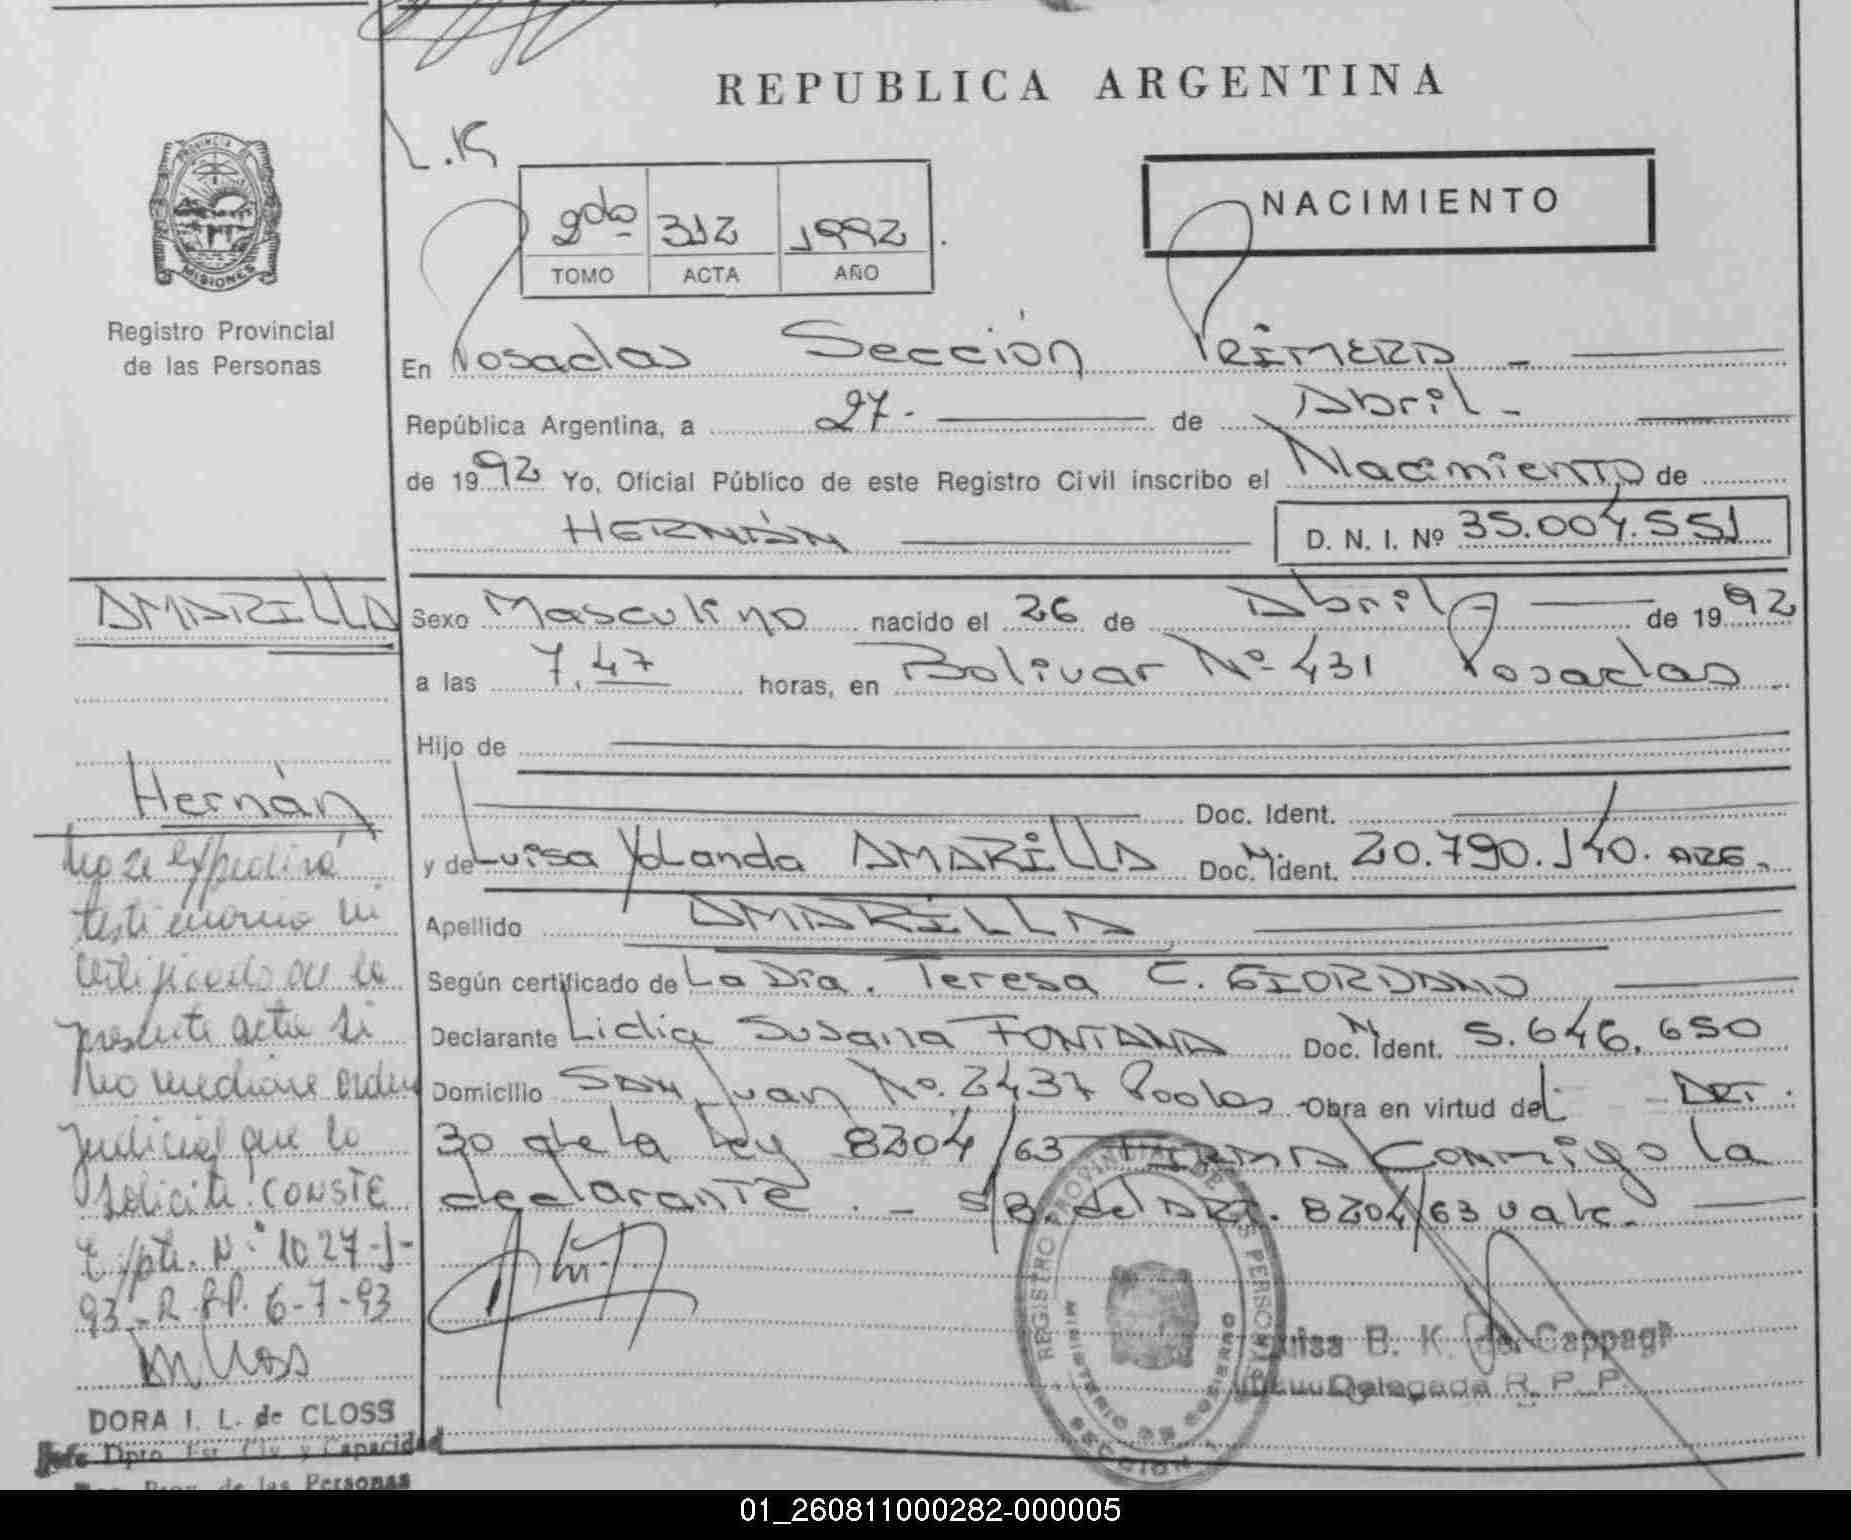 REPUBLICA ARGENTINA
L.R
PROVINCIA DE
MISIONES
Registro Provincial
de las Personas
2do 312 1992
TOMO ACTA AÑO
NACIMIENTO
En Posadas Sección PRIMERA -
República Argentina, a 27 - de Abril -
de 1992 Yo, Oficial Público de este Registro Civil inscribo el Nacimiento de
HERNÁN D. N. I. Nº 35.004.551
Sexo Masculino nacido el 26 de Abril - de 1992
a las 7,47 horas, en Bolivar Nº 431 Posadas
Hijo de
Doc. Ident.
y de Luisa Yolanda AMARILLA Doc. Ident. 20.790.140. ARG.
Apellido AMARILLA
Según certificado de La Dra. Teresa C. GIORDANO
Declarante Lidia Susana FONTANA Doc. Ident. 5.646.650
Domicilio SAN Juan Nº. 2437 Posdas - Obra en virtud del ART.
30 de la Ley 8204/63 FIRMA Conmigo la
declarante. - S/B. del ART. 8204/63 vale.
AMARILLA
Hernán
No se expedirá
testimonio ni
certificado de la
presente acta si
no mediare orden
judicial que lo
solicite. CONSTE
Expte. Nº 1027-J-
93-R.P.P. 6-7-93
DORA I. L. de CLOSS
Jefe Dpto. Est. Civ. y Capacidad
Reg. Prov. de las Personas
REGISTRO PROVINCIAL DE LAS PERSONAS
MINISTERIO DE GOBIERNO
SECCION
Luisa B. K. de Cappagi
Delegada R. P. P.
01_260811000282-000005